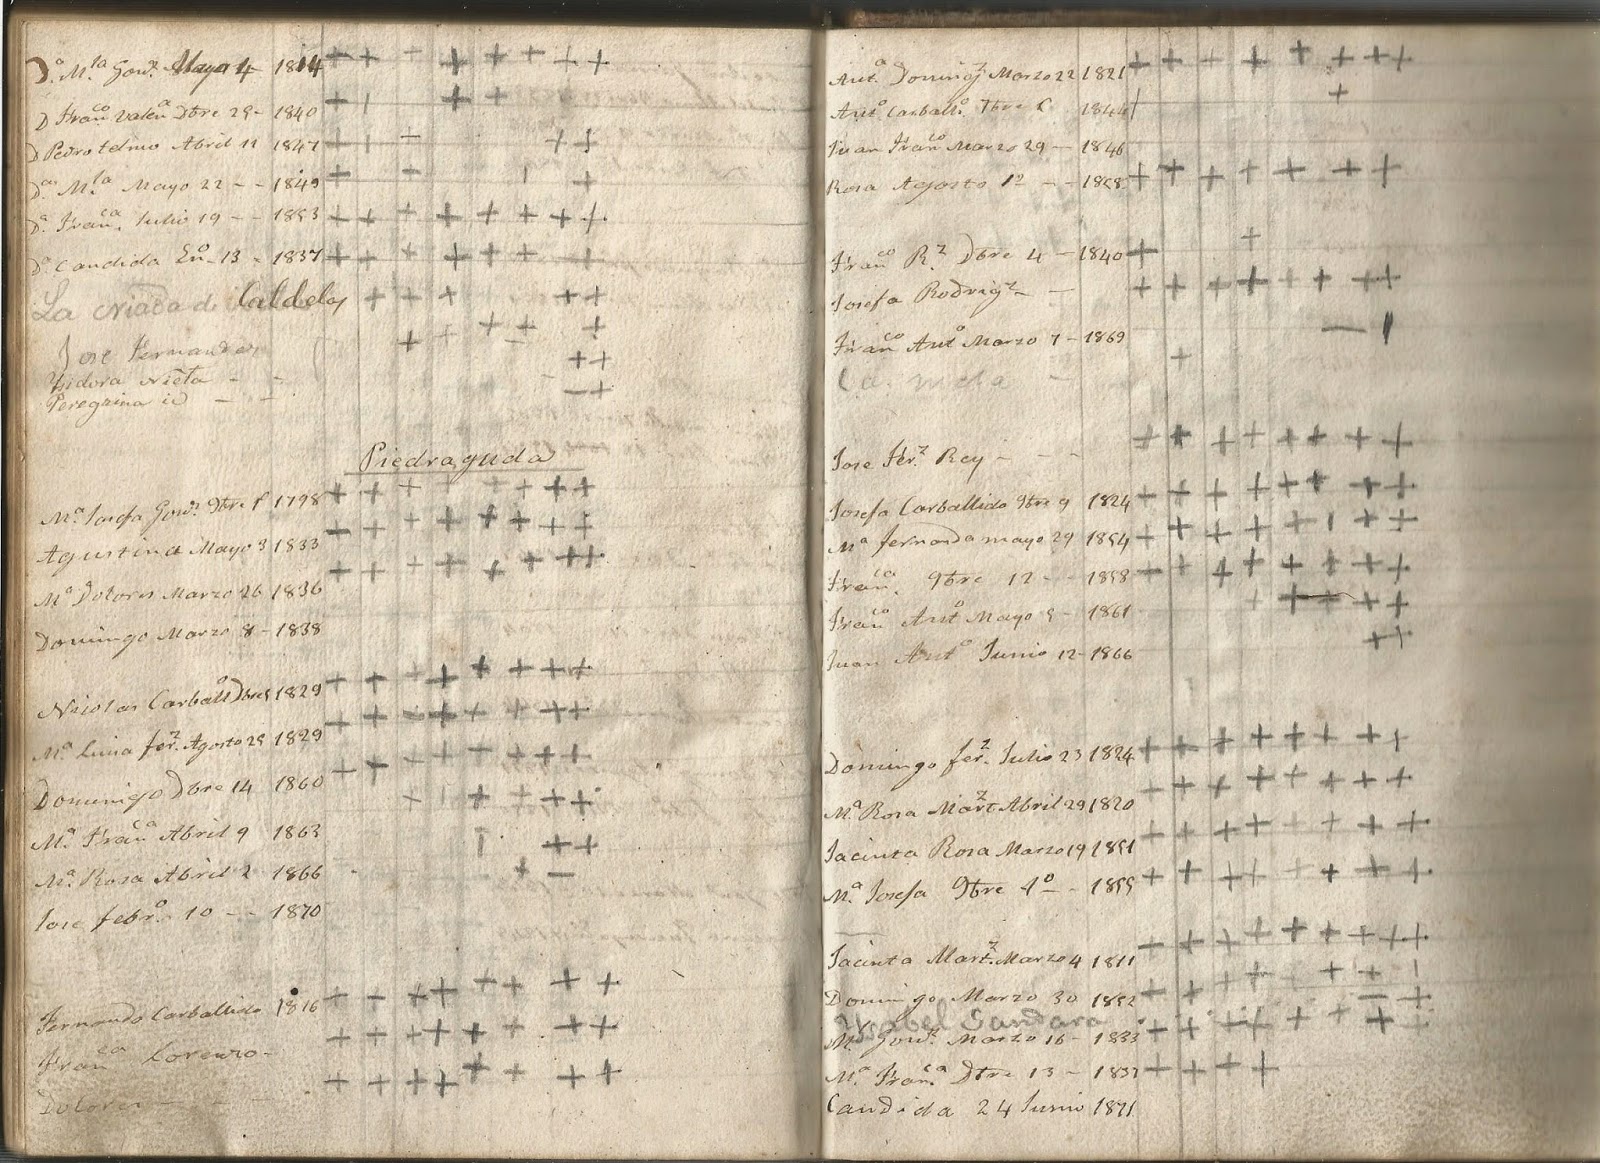 Dª. Mˡᵃ Gonᶻ. Mayo 4 - 1814
D Franᶜᵒ Valenᵃ Dbre 29 - 1840
D Pedro telmo Abril 11 1847
Dª. Mˡᵃ Mayo 22 - - 1849
Dª. Franᶜᵃ. Julio 19 - - 1853
Dª. Candida Enº. 13 - 1837
La criada de Caldelas
Jose Fernandez
Ysidora Nieta - -
Peregrina id - -
Piedraguda
Mª. Josefa Gonᶻ. 9bre 1798
Agustina Mayo 3 1833
Mª Dolores Marzo 26 1836
Domingo Marzo 8 - 1838
Nicolas Carballº Dbre 1829
Mª Luisa ferᶻ. Agosto 29 1829
Domingo Dbre 14 1860
Mª. Franᶜᵃ Abril 9 1863
Mª. Rosa Abril 2 1866
Jose febrº. 10 - - 1870
Fernando Carballido 1816
Franᶜᵃ Lorenzo -
Dolores - - -
Antª. Domingᶻ Marzo 22 1821
Antº Carballº. 7bre 1844
Juan Franᶜᵒ Marzo 29 - 1846
Rosa Agosto 12 - - 1858
Franᶜᵒ Rᶻ. Dbre 4 - 1840
Josefa Rodrigᶻ -
Franᶜᵒ Antº Marzo 7 - 1869
La nieta -
Jose Ferᶻ. Rey - - -
Josefa Carballido 9bre 9 1824
Mª fernanda mayo 29 1854
Franᶜᵃ. 9bre 12 - - 1858
Franᶜᵒ Antº Mayo 9 - 1861
Juan Antº Junio 12 - 1866
Domingo ferᶻ. Julio 23 1824
Mª Rosa Martᶻ Abril 29 1820
Jacinta Rosa Marzo 19 1851
Mª. Josefa 9bre 1º - 1855
Jacinta Martᶻ. Marzo 4 1811
Domingo Marzo 30 1852
Ysabel Gandara
Mª Gonᶻ. Marzo 16 - 1833
Mª. Franᶜᵃ. Dbre 13 - 1837
Candida 24 Junio 1871